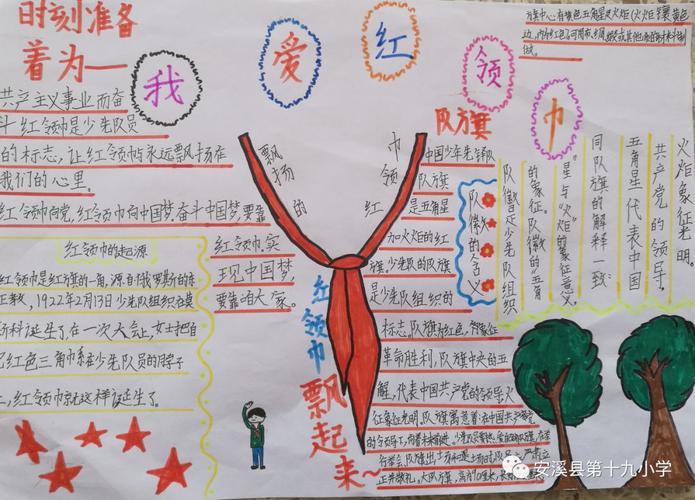 时刻准备
着为一
我
爱
红
领
巾
共产主义事业而奋
斗红领巾是少先队员
的标志，让红领巾永远飘扬在
我们的心里。
红领巾向党，红领巾向中国梦，奋斗中国梦，要靠
红领巾的起源
红领巾是红旗的一角，源自
正教，1922年2月13日少先队组织在莫
斯科诞生了，在一次大会上，女士把自
己红色三角巾系在少先队员的脖子
上，红领巾就这样诞生了。
飘扬的
红领巾
红领巾，实
现中国梦
要靠咱大家。
红领巾
飘起来～
队旗
中国少年先锋队
队旗
是五角星
加火炬的红
旗。少先队的队旗
是少先队组织的
标志。队旗为红色，象征
革命胜利，队旗中央的五
代表中国共产党的领导，火
炬象征光明，队旗寓意着：在中国共产党
队徽的含义
火炬象征光明。
共产党的领导。
五角星代表中国
同队旗的解释一致：
"星"与"火炬"的象征意义
的象征。队徽的"五角
队徽是少先队组织
安溪县第十九小学